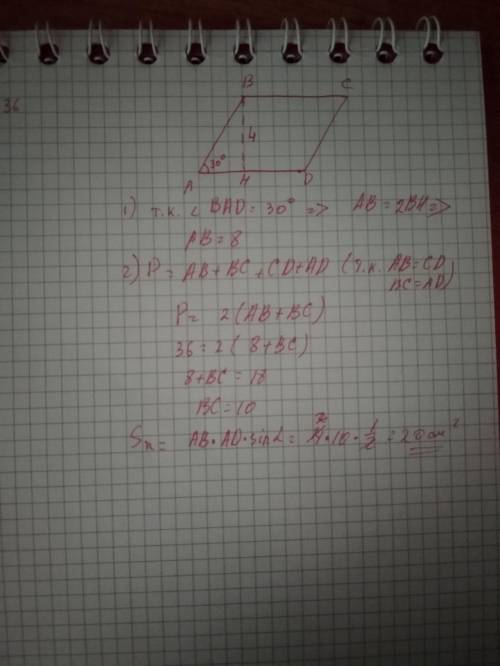 36
B C
4
30°
A H D
1) т.к. ∠ BAD = 30° => AB = 2BH =>
AB = 8
2) P = AB + BC + CD + AD (т.к. AB = CD
BC = AD)
P = 2(AB + BC)
36 = 2(8 + BC)
8 + BC = 18
BC = 10
Sп = AB · AD · sin∠ = · 10 · 1/2 = 20 см²